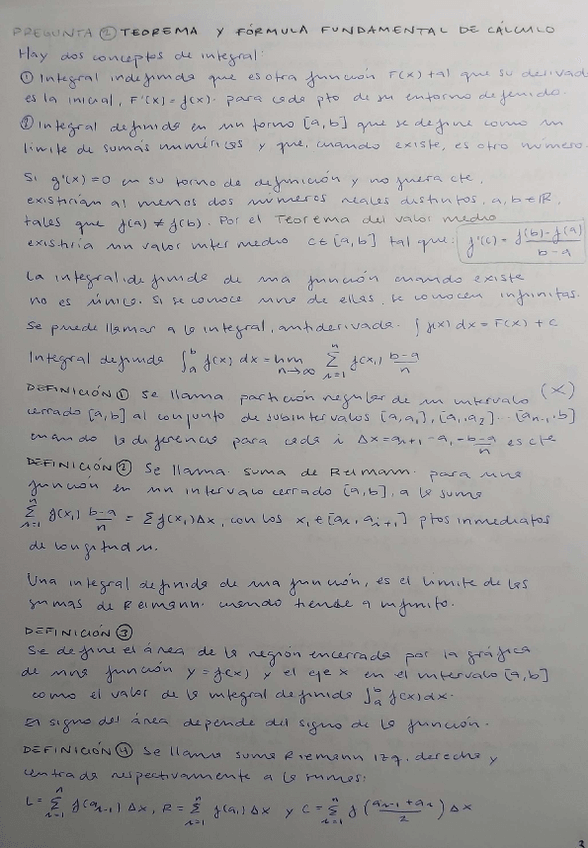 PREGUNTA ② TEOREMA Y FÓRMULA FUNDAMENTAL DE CÁLCULO
Hay dos conceptos de integral:
① Integral indefinida que es otra función F(x) tal que su derivad
es la inicial, F'(x) = f(x). para cada pto de su entorno definido.
② Integral definida en un torno [a,b] que se define como un
límite de sumas numéricas y que, cuando existe, es otro número.
Si g'(x) = 0 en su torno de definición y no fuera cte,
existirían al menos dos números reales distintos, a, b ∈ ℝ,
tales que f(a) ≠ f(b). Por el Teorema del valor medio
existiría un valor intermedio c ∈ [a,b] tal que: f'(c) = f(b) - f(a) / b-a
La integral definida de una función cuando existe
no es único. Si se conoce una de ellas, se conocen infinitas.
Se puede llamar a la integral, antiderivada. ∫ f(x) dx = F(x) + C
Integral definida ∫_a^b f(x) dx = lim_{n→∞} Σ_{i=1}^n f(x_i) b-a/n
DEFINICIÓN ① Se llama partición regular de un intervalo (X)
cerrado [a,b] al conjunto de subintervalos [a,a₁], [a₁,a₂]... [a_{n-1},b]
cuando la diferencia para cada i Δx = a_{i+1} - a_i = b-a/n es cte
DEFINICIÓN ② Se llama suma de Reimann para una
función en un intervalo cerrado [a,b], a la suma
Σ_{i=1}^n f(x_i) b-a/n = Σ f(x_i) Δx, con los x_i ∈ [a_i, a_{i+1}] ptos inmediatos
de longitud n.
Una integral definida de una función, es el límite de las
sumas de Reimann. cuando tiende a infinito.
DEFINICIÓN ③
Se define el área de la región encerrada por la gráfica
de una función y = f(x) y el eje x en el intervalo [a,b]
como el valor de la integral definida ∫_a^b f(x) dx.
El signo del área depende del signo de la función.
DEFINICIÓN ④ Se llama suma Riemann izq, derecha y
centrada respectivamente a las sumas:
L = Σ_{i=1}^n f(a_{i-1}) Δx, R = Σ_{i=1}^n f(a_i) Δx y C = Σ_{i=1}^n f(a_{i-1} + a_i / 2) Δx
3